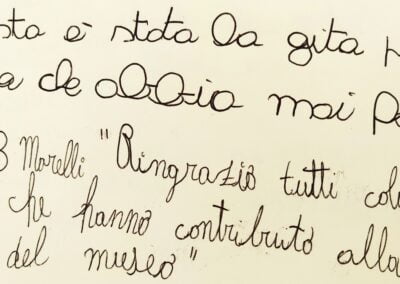 sta è stata la gita
a de abbia mai
B Morelli "Ringrazio tutti
che hanno contribuito alla
del museo"